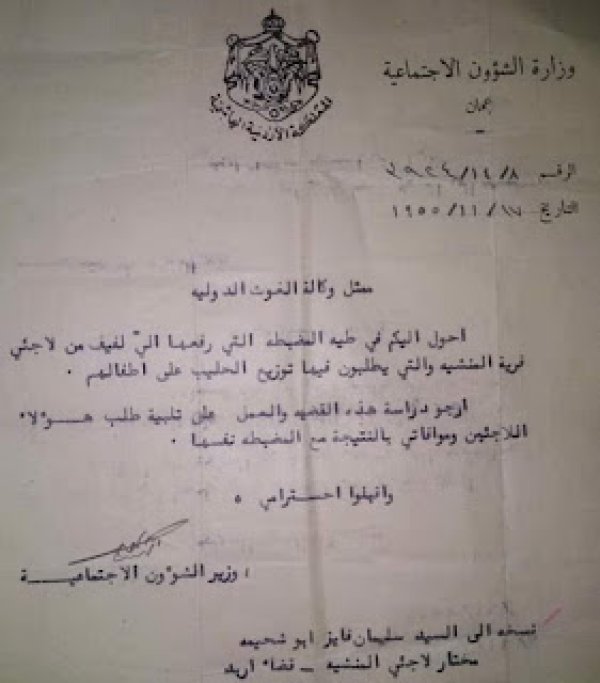 وزارة الشؤون الاجتماعية
عمان
المملكة الأردنية الهاشمية
الرقم ٨/١٤/٣٩٢٤
التاريخ ١٧/١١/١٩٥٥
ممثل وكالة الغوث الدوليه
احول اليكم في طيه المضبطه التي رفعها اليّ لفيف من لاجئي
قرية المنشيه والتي يطلبون فيها توزيع الحليب على اطفالهم ٠
ارجو دراسة هذه القضيه والعمل على تلبية طلب هـــؤلاء
اللاجئين وموافاتي بالنتيجة مع المضبطه نفسها ٠
واقبلوا احترامي ٥
/ وزير الشؤون الاجتماعيــــة
نسخه الى السيد سليمان فايز ابو شحيمه
مختار لاجئي المنشيه ــ قضاء اربد